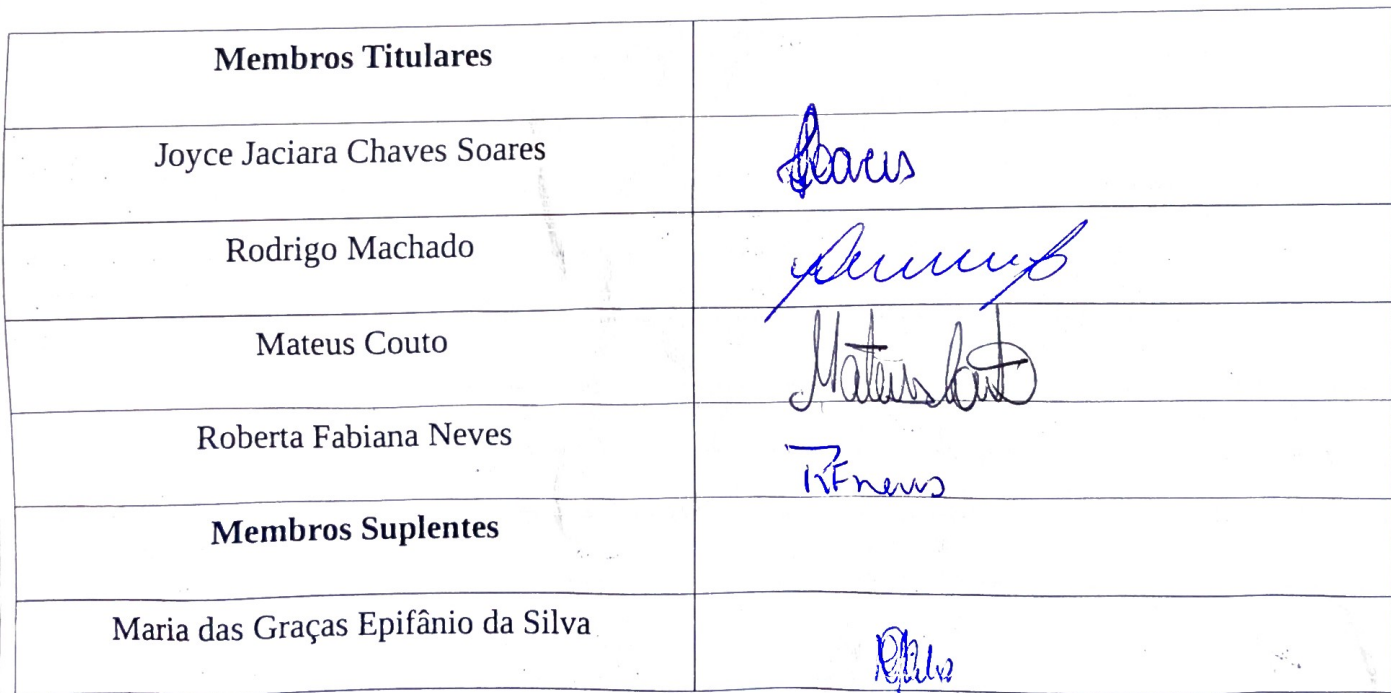 Membros Titulares
Joyce Jaciara Chaves Soares
Rodrigo Machado
Mateus Couto
Mateus Couto
Roberta Fabiana Neves
RFneves
Membros Suplentes
Maria das Graças Epifânio da Silva